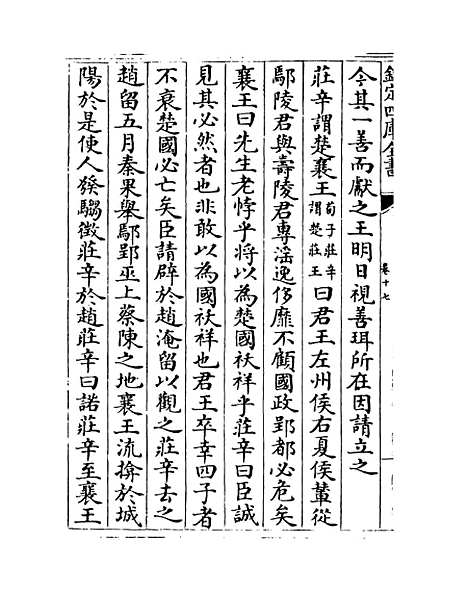 欽定四庫全書
卷十七
令其一善而獻之王明日視善珥所在因請立之
莊辛謂楚襄王荀子莊辛謂楚莊王曰君王左州侯右夏侯輦從
鄢陵君與壽陵君專滛逸侈靡不顧國政郢都必危矣
襄王曰先生老悖乎將以為楚國祅祥乎莊辛曰臣誠
見其必然者也非敢以為國祅祥也君王卒幸四子者
不衰楚國必亡矣臣請辟於趙淹留以觀之莊辛去之
趙留五月秦果舉鄢郢巫上蔡陳之地襄王流揜於城
陽於是使人發騶徵莊辛於趙莊辛曰諾莊辛至襄王